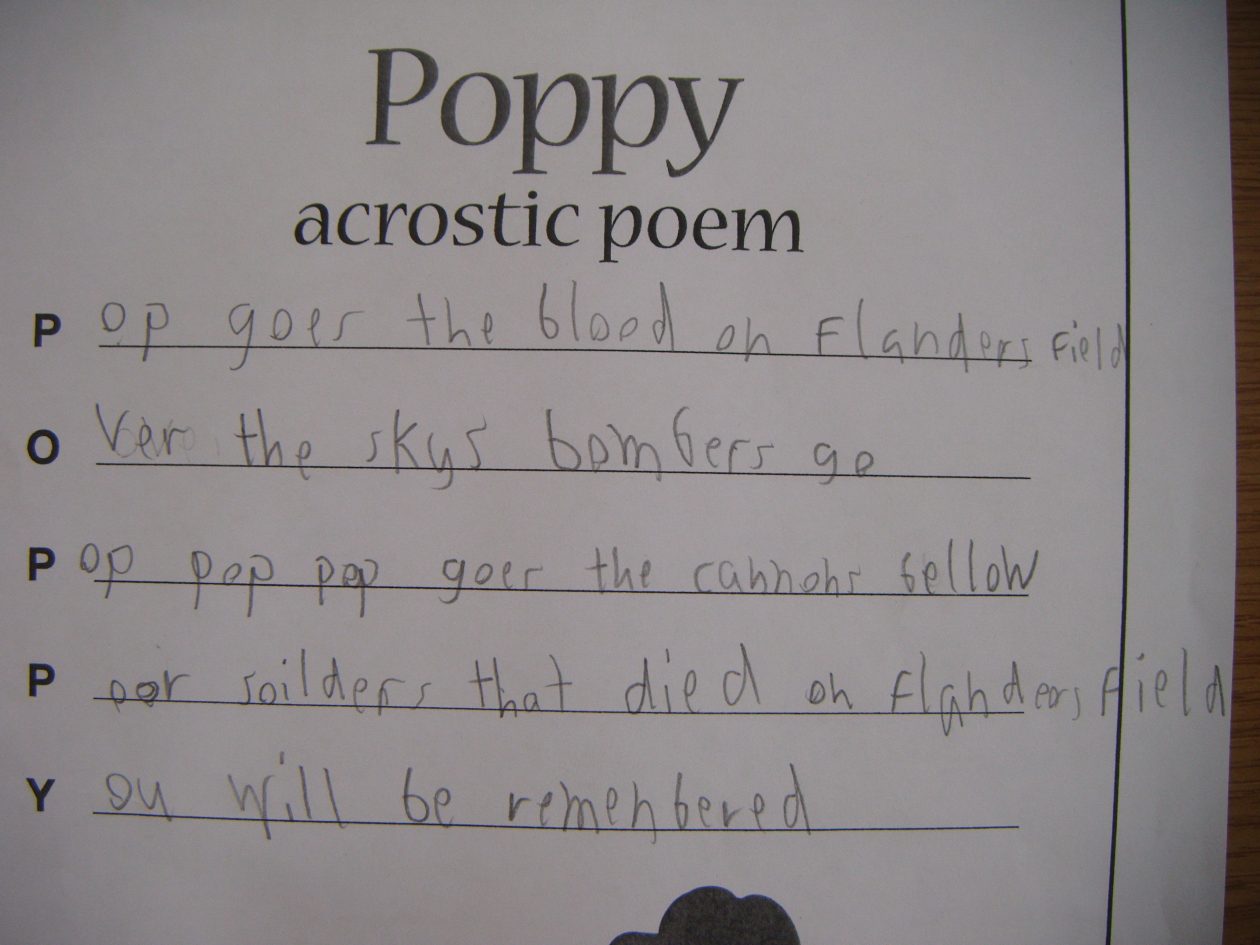 Poppy
acrostic poem
Pop goes the blood on Flanders Field
Over the skys bombers go
Pop pop pop goes the cannons bellow
Poor soilders that died on Flanders Field
You will be remenbered